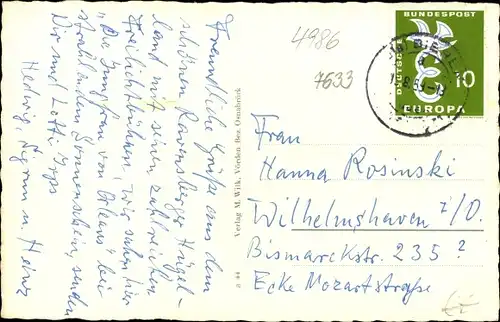 Freundliche Grüße aus dem
schönen Ravensberger Hügel-
land mit seinen zahlreichen
Freilichtbühnen, wir sahen hier
"Die Jungfrau von Orleans" bei
strahlendem Sonnenschein, senden
Dir und Lotti
Hedwig, Sigrun u. Heinz
Verlag M. Wilk, Vörden Bez. Osnabrück
a 44
4986
7633
DEUTSCHE
BUNDESPOST
10
EUROPA
Frau
Hanna Rosinski
Wilhelmshaven i/O.
Bismarckstr. 235?
Ecke Mozartstraße